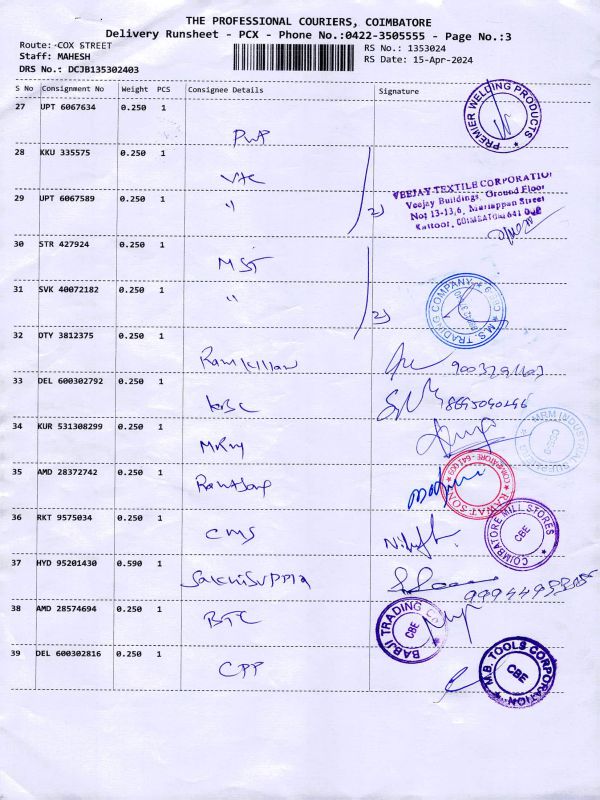 THE PROFESSIONAL COURIERS, COIMBATORE
Delivery Runsheet - PCX - Phone No.:0422-3505555 - Page No.:3
Route: COX STREET
RS No.: 1353024
Staff: MAHESH
RS Date: 15-Apr-2024
DRS No.: DCJB135302403
S No Consignment No Weight PCS Consignee Details Signature
27 UPT 6067634 0.250 1
PREMIER WELDING PRODUCTS
PWP
28 KKU 335575 0.250 1
VTC
29 UPT 6067589 0.250 1
"
2)
VEEJAY TEXTILE CORPORATION
Veejay Buildings, Ground Floor
No: 13-13,6, Mariappan Street
Kattoor, COIMBATORE-641 009
30 STR 427924 0.250 1
MST
31 SVK 40072182 0.250 1
"
2)
M.S. TRADING COMPANY
32 DTY 3812375 0.250 1
33 DEL 600302792 0.250 1
KBC
34 KUR 531308299 0.250 1
MRM INDUSTRIAL
35 AMD 28372742 0.250 1
RAWATSONS
COIMBATORE - 641 009
36 RKT 9575034 0.250 1
CMS
COIMBATORE MILL STORES
CBE
37 HYD 95201430 0.590 1
38 AMD 28574694 0.250 1
BTC
BABJI TRADING CO
CBE
39 DEL 600302816 0.250 1
CPP
M.B. TOOLS CORPORATION
CBE